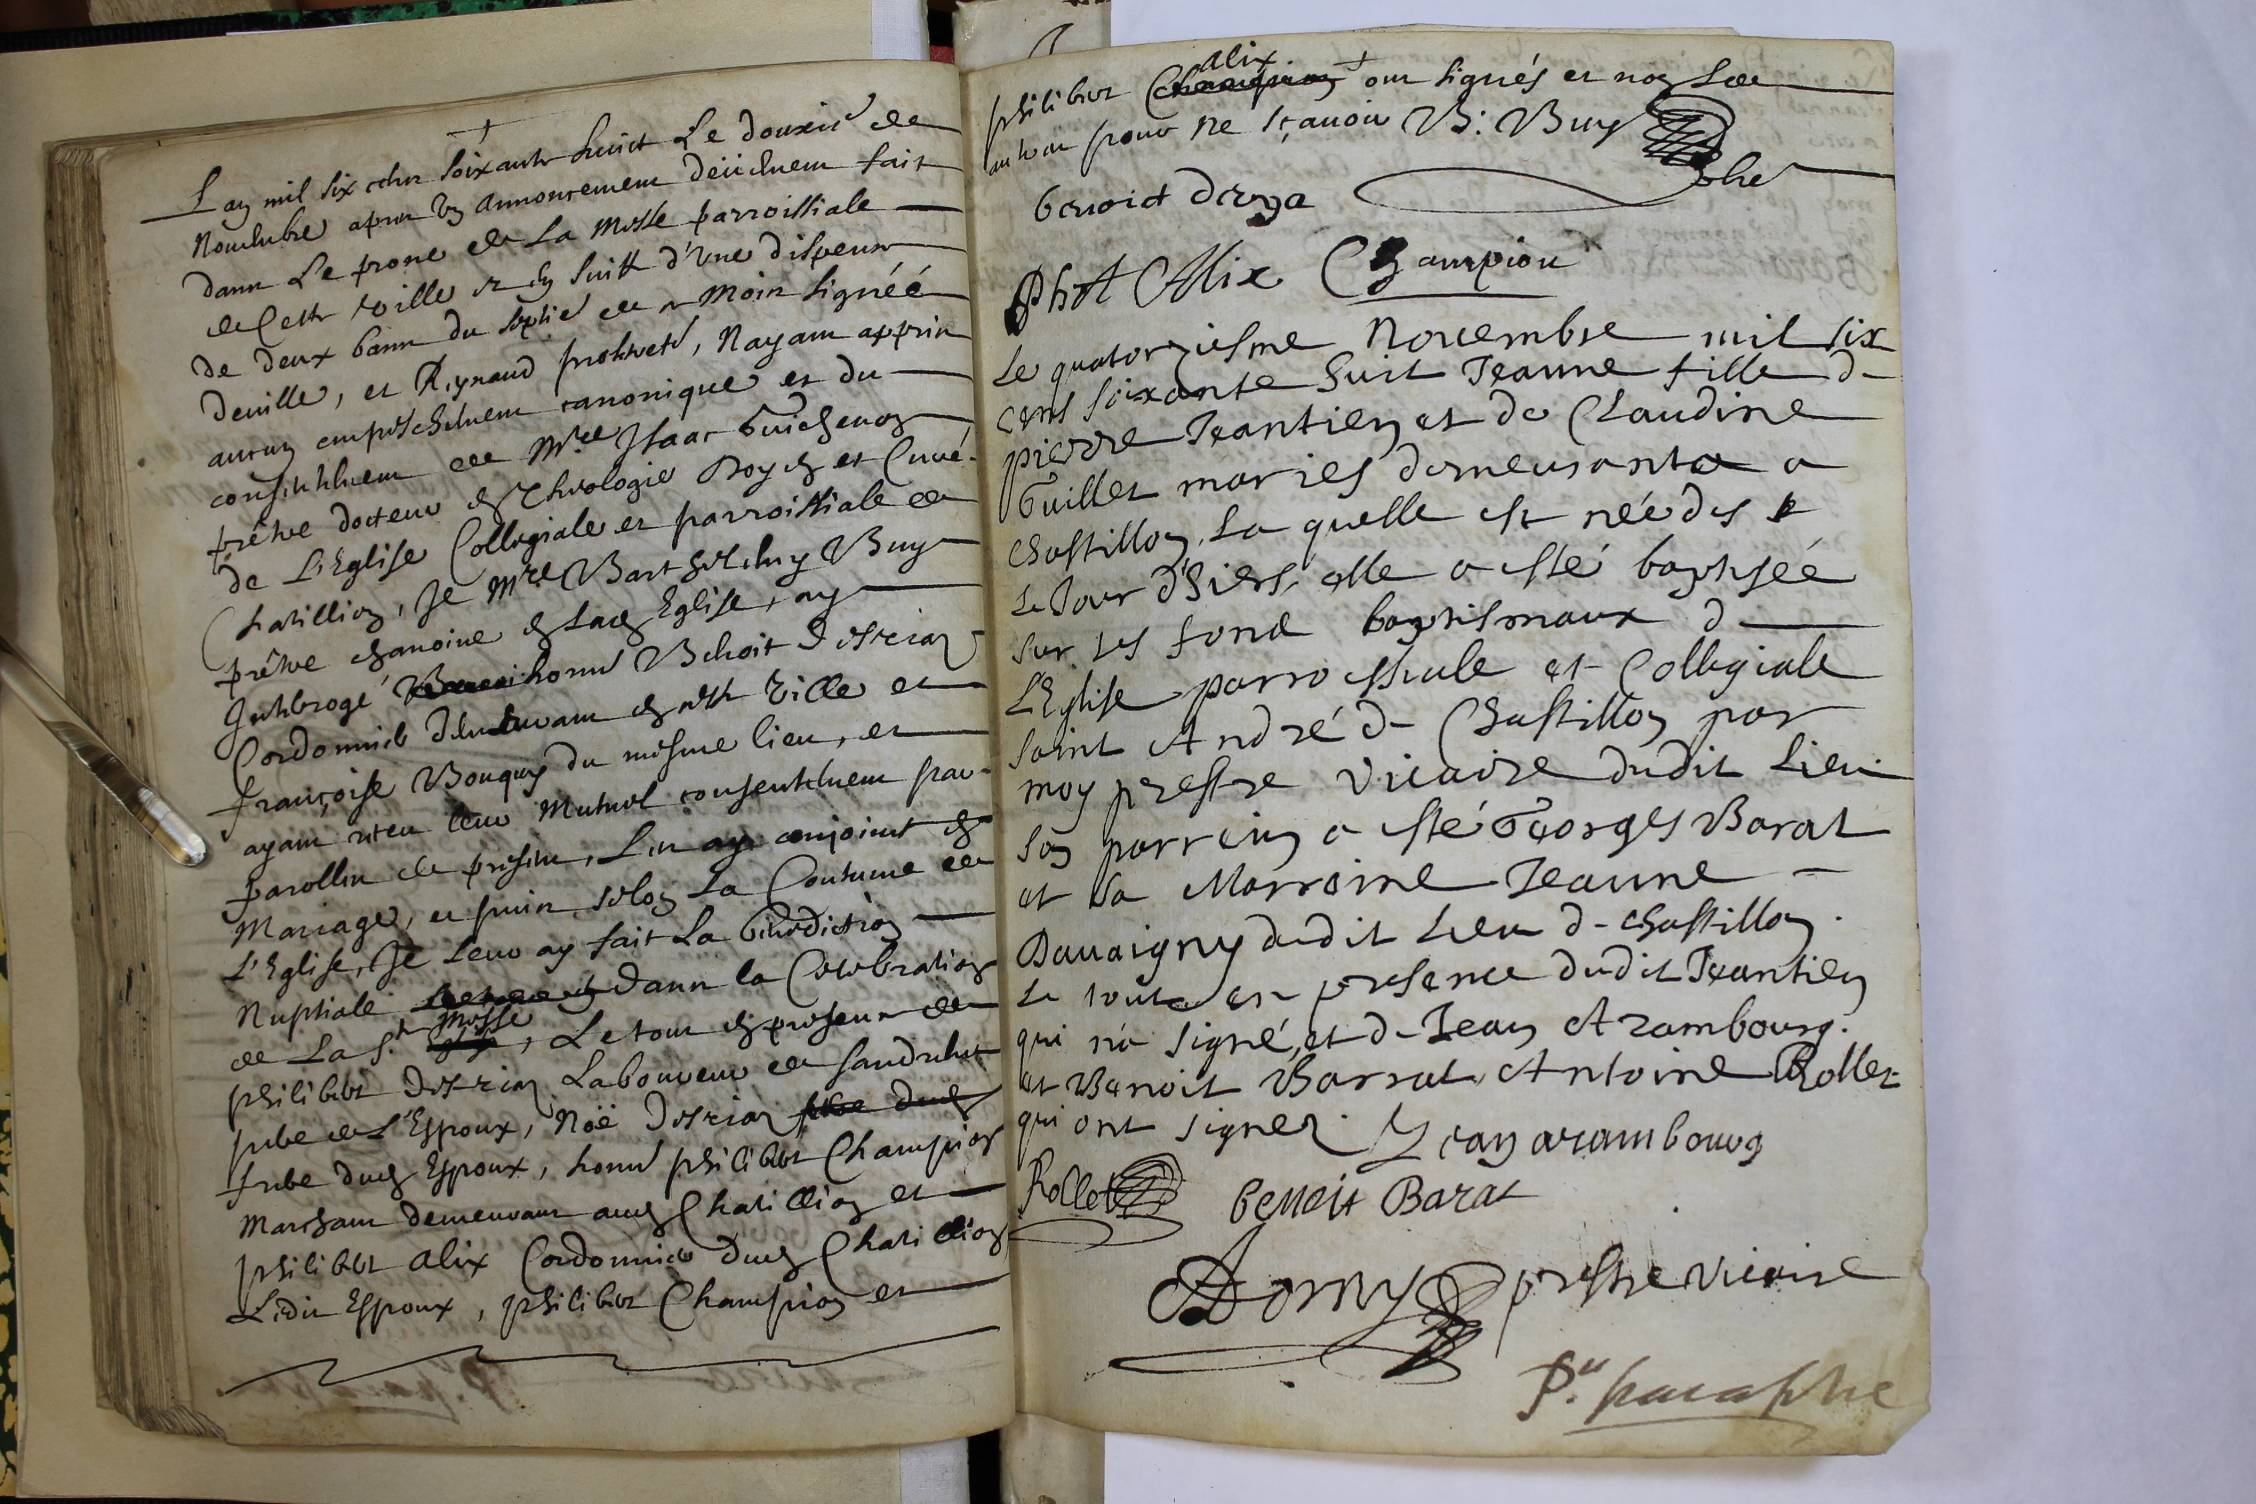 L'an mil six cens soixante huict Le douxie de
Novembre apres un annoncement deüement fait
dans Le prone de La Messe parroissiale
de Cette ville et en suitte d'une dispense
de deux banns du septie de ce Moin signéé
Deville, et Reynaud , Nayant apprin
aucun empeschement canonique et du
consentement de Mre Isaac Guichenon
prêtre docteur en Theologie Doyen et Curé
de L'Eglise Collegiale et parroissiale de
Chatillion, Je Mre Barthelemy Buy
prêtre chanoine en lad Eglise, ay
Interrogé honn Benoit Dosrion
Cordonnier demeurant en cette Ville et
françoise Bouquy du mesme lieu, et
ayant receu leur Mutuel consentement par
parollen de present, Len ay conjoint en
Mariage, et puin selon La Coutume de
L'Eglise, Je Leur ay fait La benediction
Nuptiale dans la Celebration
de La Ste Messe, Le tout en presence de
philibert Dosrion Laboureur de Sandrens
frere de L'Espoux, Noë Dosrion
frere dud Espoux, honn philibert Champion
Marchant demeurant aud Chatillion et
philibert alix Cordonnier dud Chatillion
Ledit Espoux, philibert Champion et
philibert alix ont signés et non Les
autres pour ne sçavoir B: Buy
pbre
benoict
Phbt Allix Champion
Le quatorziesme Novembre mil six
cens soixante huit Jeanne fille d-
pierre Jeantien et de Claudine
Guillet maries demeurants a
chastillon, La quelle est née des
Le Jour d'hiers, elle a esté baptisée
sur les fond baptismaux d
L'Eglise parrochiale et Collegiale
saint André d- Chastillon par
moy prestre vicaire dudit Lieu
son parrein a esté Georges Barat
et sa Marroine Jeanne -
Davaigny dudit Lieu d- chastillon.
Le tout en presence dudit Jeantien
qui n'a signé, et d- Jean Arambourg.
et Benoit Barrat, Antoine Rollet
qui ont signez Jean arambourg
Rollet benoit Barat
Dorny prestre vicaire
P.r paraphe